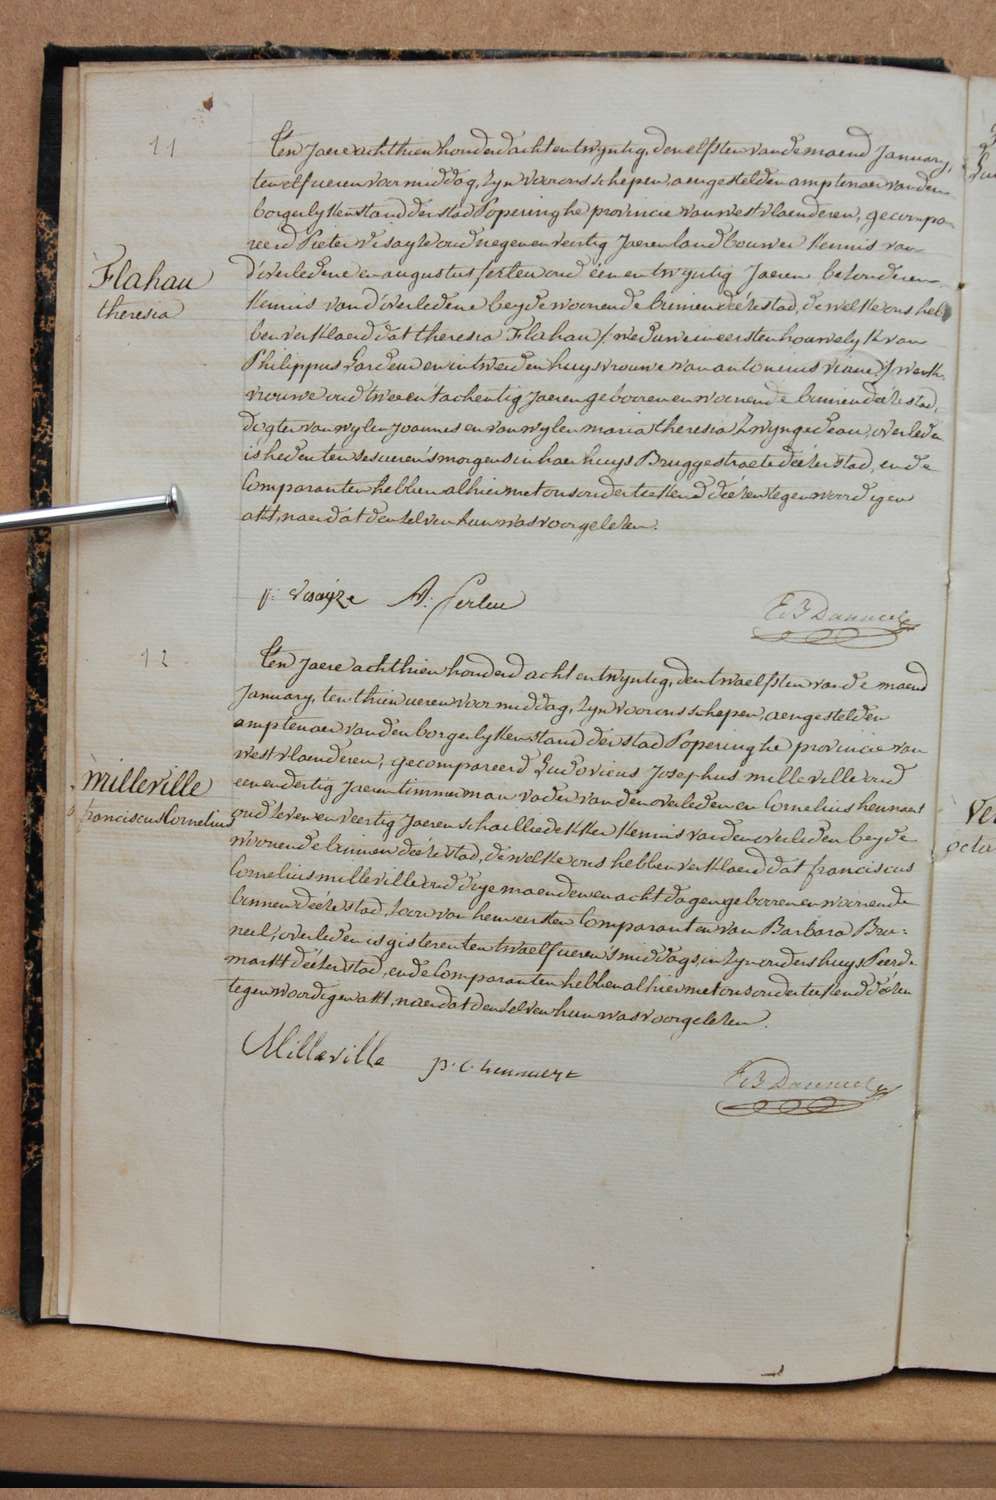 11
Flahau
theresia
Ten Jaere achthien honderd acht en twyntig, den elfsten van de maend January,
ten elf ueren voor middag, zyn voor ons schepen, aengestelden amptenaer van den
borgerlyken stand der stad Poperinghe provincie van westvlaenderen, gecompa-
reerd Pieter Visayze oud negen en veirtig Jaeren landbouwer kennis van
d'overledene en augustus ferleu oud een en twyntig Jaeren bezonderen
kennis van d'overledene beyde woonende binnen deéze stad, de welke ons heb
ben verklaerd dat theresia Flahau /: weduwe in eersten houwelyk van
Philippus Gardeu en in tweeden huysvrouwe van antonius viane :/ werk-
vrouwe oud twee en tachentig Jaeren gebooren en woonende binnen deéze stad,
dogter van wylen Joannes en van wylen maria theresia Zwyngedeau, overleden
is heden ten ses ueren 's morgens in haer huys Bruggestraete deézer stad, en de
Comparanten hebben alhier met ons onderteekend deézen tegenwoordigen
akt, naer dat den selven hun was voorgelezen.
p: visayze A: ferleu
E B Dauwel
12
Milleville
franciscus Cornelius
Ten Jaere achthien honderd acht en twyntig, den twaelfsten van de maend
January, ten thien ueren voor middag, zyn voor ons schepen, aengestelden
amptenaer van den borgerlyken stand der stad Poperinghe provincie van
westvlaenderen, gecompareerd Ludovicus Josephus milleville oud
een en dertig Jaeren timmerman vader van den overledenen Cornelius hennaert
oud seven en veertig Jaeren schailliedekker kennis van den overleden beyde
woonende binnen deéze stad, de welke ons hebben verklaerd dat franciscus
Cornelius milleville oud drye maenden en acht dagen gebooren en woonende
binnen deéze stad, soon van hem eersten Comparant en van Barbara Bru-
neel, overleden is gisteren ten twaelf ueren 's middags, in zyn ouders huys Peerde
markt deézer stad, en de Comparanten hebben alhier met ons onderteekend deézen
tegenwoordigen akt, naer dat den selven hun was voorgelezen.
Milleville p. C. hennaert
E B Dauwel